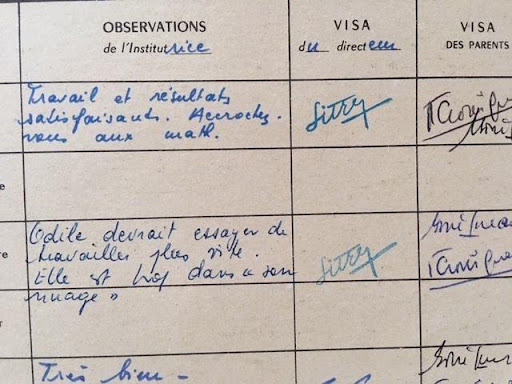 OBSERVATIONS
de l'Institutrice
VISA
du directeur
VISA
DES PARENTS
Travail et résultats
satisfaisants. Accrochez.
vous aux math.
Sitry
Odile devrait essayer de
travailler plus vite.
Elle est trop dans « son
nuage »
Sitry
Très bien -